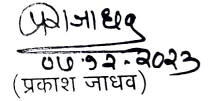 प्रजाधव
०७.१२.२०२३
(प्रकाश जाधव)